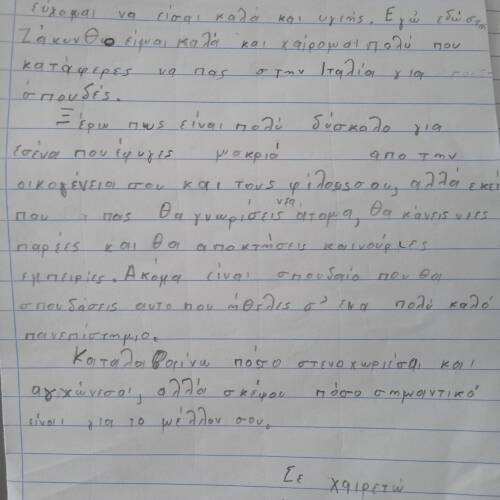 εύχομαι να είσαι καλά και υγιής. Εγώ εδώ στη
Ζάκυνθο είμαι καλά και χαίρομαι πολύ που
κατάφερες να πας στην Ιταλία για
σπουδές.
Ξέρω πως είναι πολύ δύσκολο για
εσένα που έφυγες μακριά απο την
οικογένεια σου και τους φίλους σου, αλλά εκεί
που πας θα γνωρίσεις νέα άτομα, θα κάνεις νέες
παρέες και θα αποκτήσεις καινούριες
εμπειρίες. Ακόμα είναι σπουδαίο που θα
σπουδάσεις αυτο που ήθελες σ' ένα πολύ καλό
πανεπιστήμιο.
Καταλαβαίνω πόσο στενοχωριέσαι και
αγχώνεσαι, αλλά σκέψου πόσο σημαντικό
είναι για το μέλλον σου.
Σε χαιρετώ